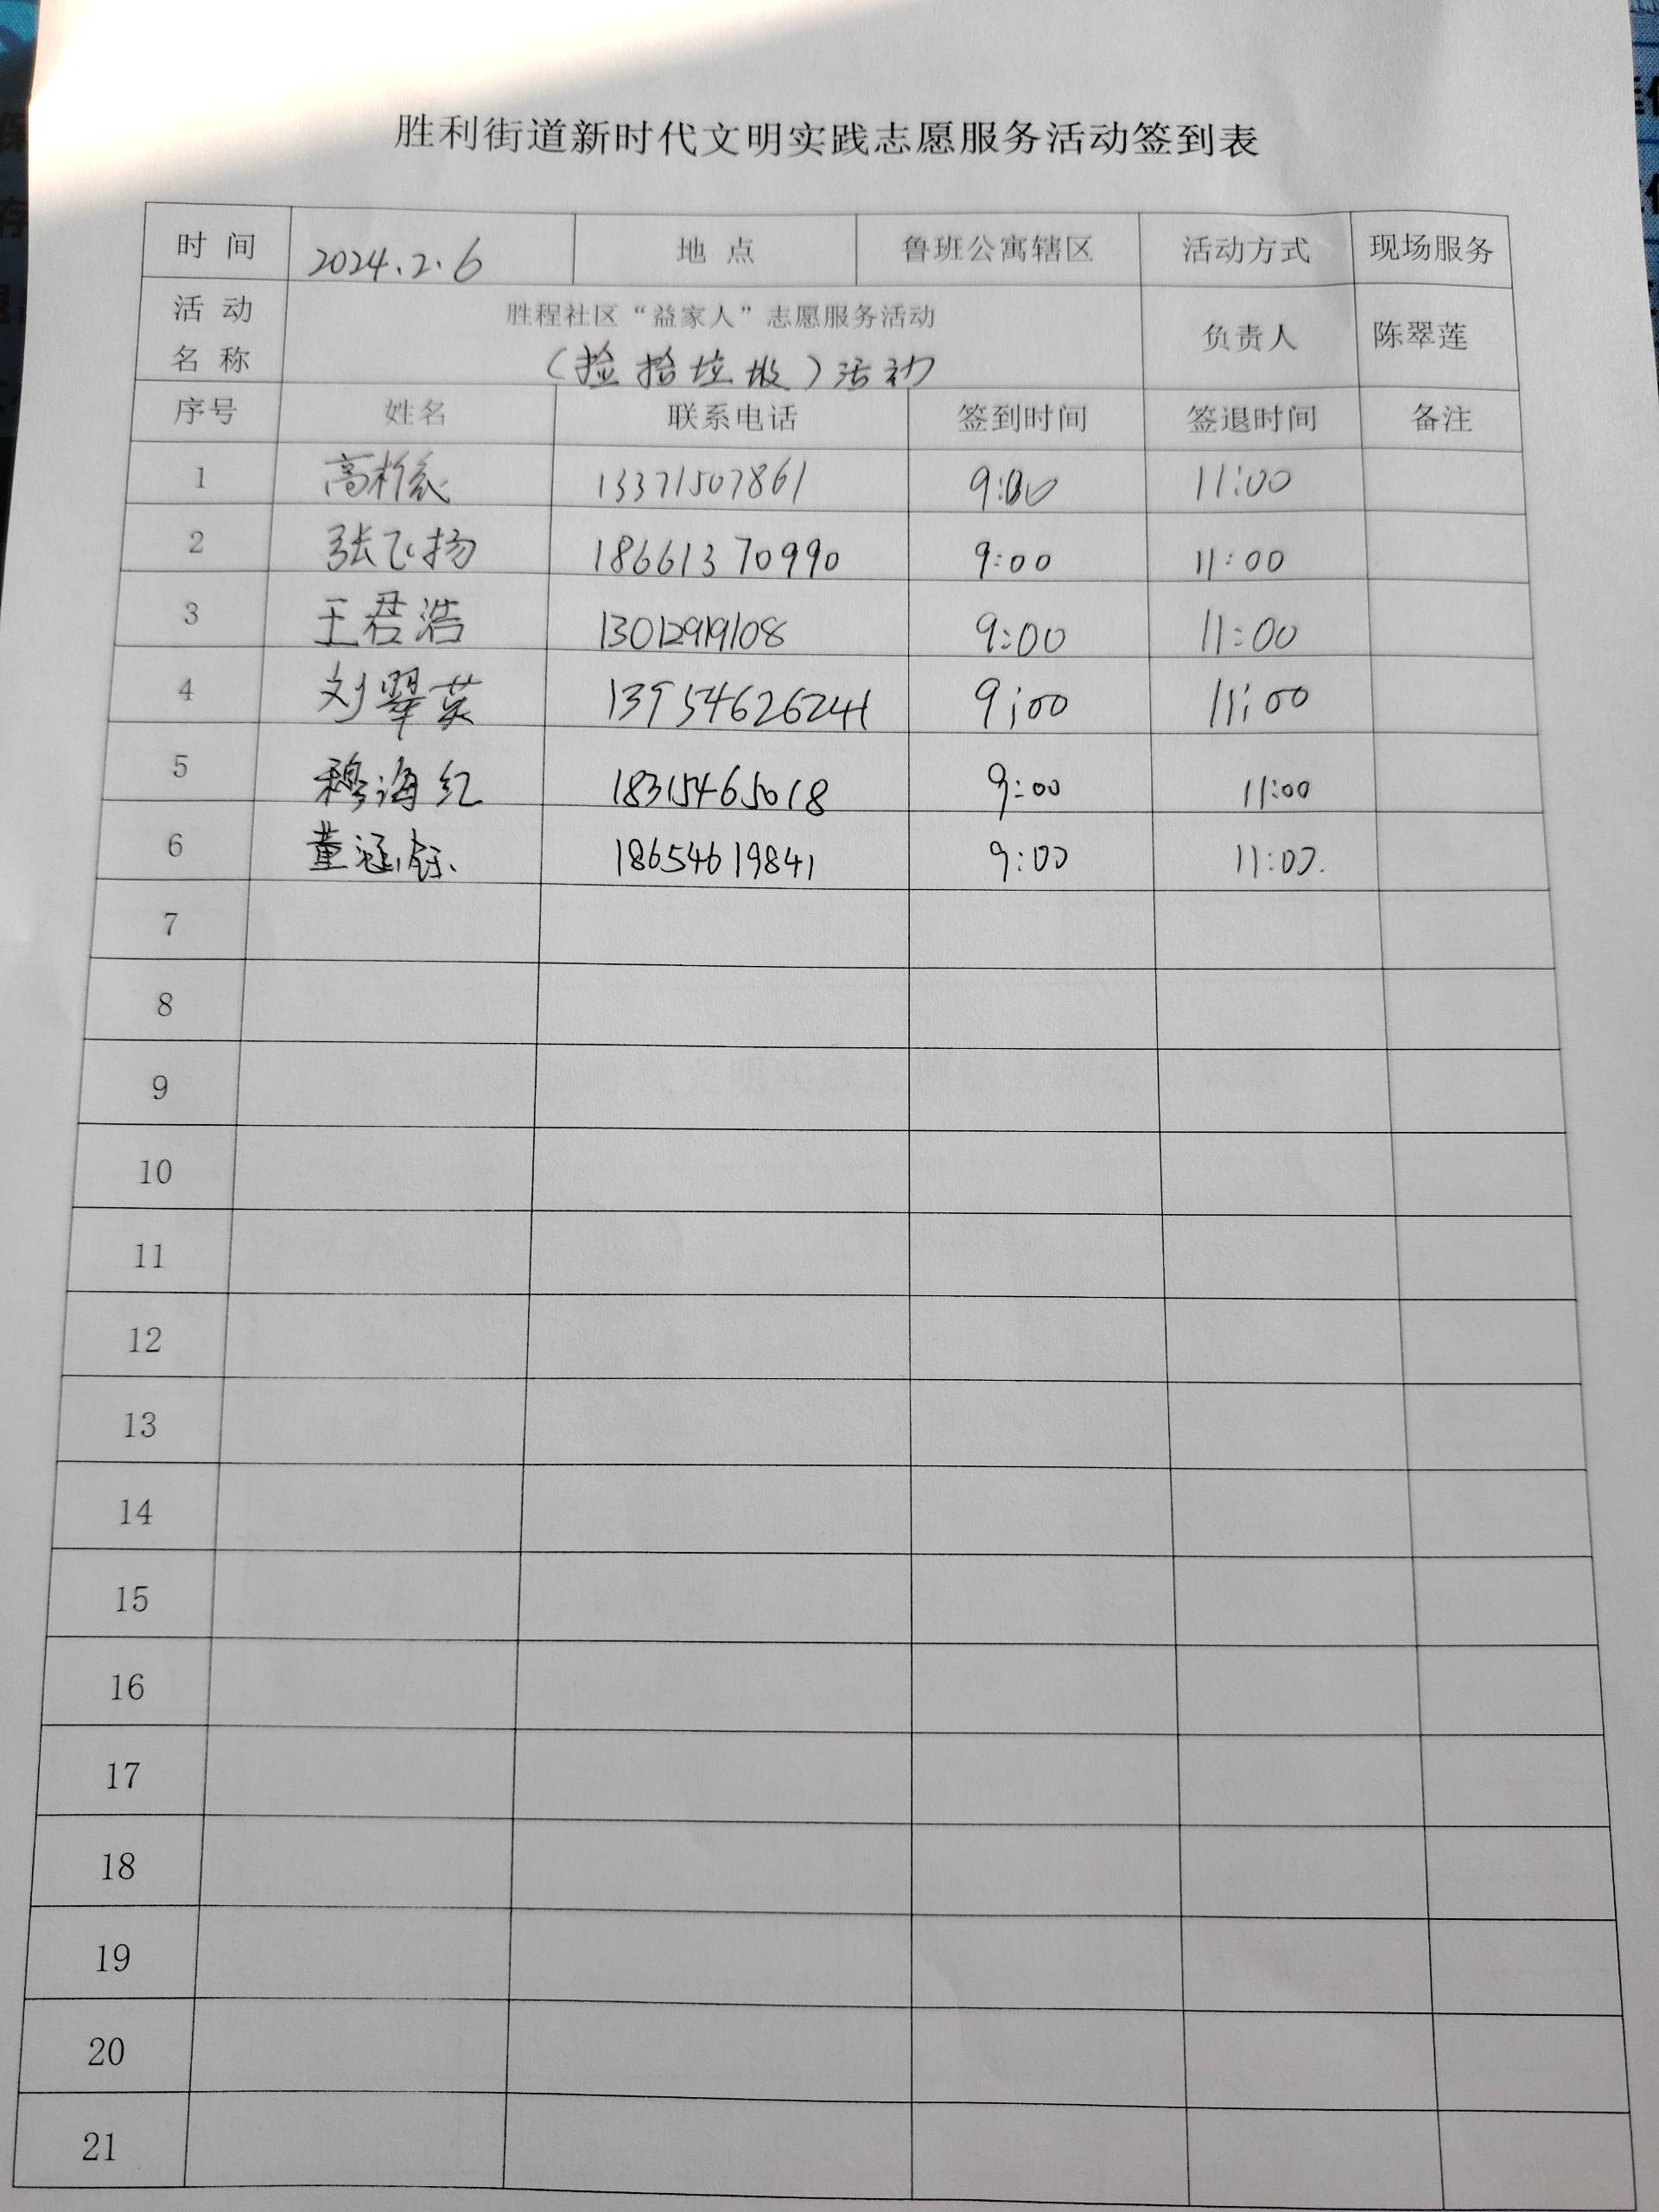 胜利街道新时代文明实践志愿服务活动签到表
时 间 2024.2.6 地 点 鲁班公寓辖区 活动方式 现场服务
活 动 名 称 胜程社区“益家人”志愿服务活动 负责人 陈翠莲
(捡拾垃圾)活动
序号 姓名 联系电话 签到时间 签退时间 备注
1 高 13371507861 9:00 11:00
2 张飞扬 18661370990 9:00 11:00
3 王君浩 13012919108 9:00 11:00
4 刘翠英 13954626241 9:00 11:00
5 穆海红 18315465018 9:00 11:00
6 董涵钰 18654619841 9:00 11:00.
7
8
9
10
11
12
13
14
15
16
17
18
19
20
21